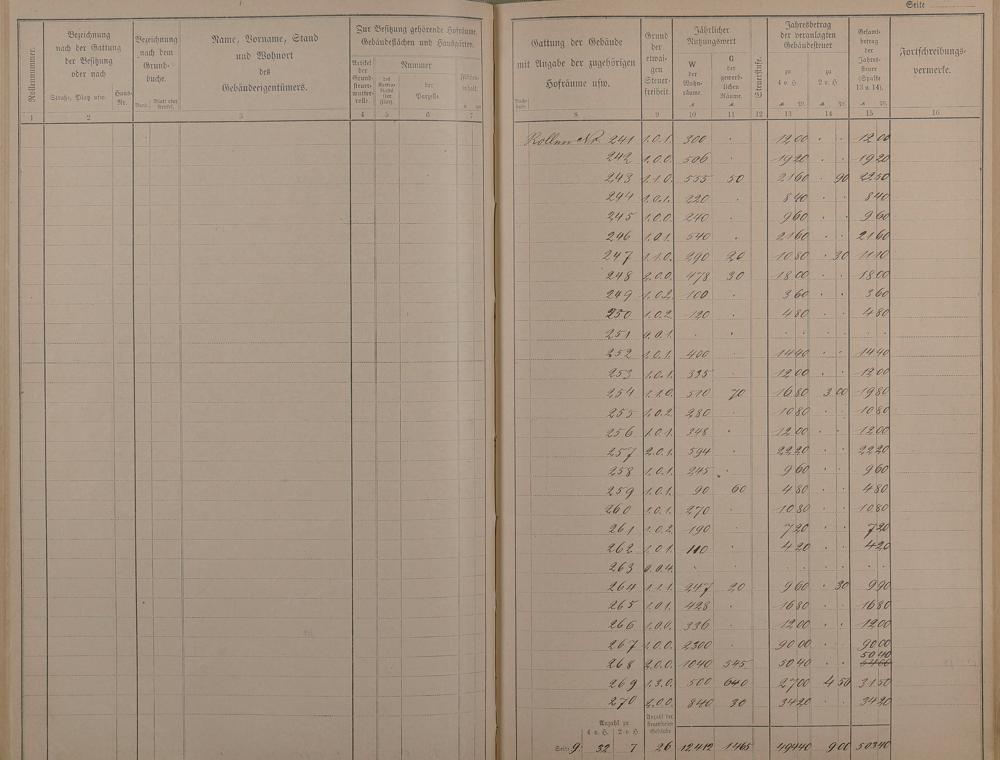 Seite
Rollennummer.
Bezeichnung nach der Gattung der Besitzung oder nach
Straße, Platz usw. Haus-Nr.
Bezeichnung nach dem Grundbuche.
Band. Blatt oder Artikel.
Name, Vorname, Stand und Wohnort des Gebäudeeigentümers.
Zur Besitzung gehörende Hofräume, Gebäudeflächen und Hausgärten.
Artikel der Grundsteuermutterrolle.
Nummer
des Kartenblatts (der Flur).
der Parzelle.
Flächeninhalt.
Gattung der Gebäude mit Angabe der zugehörigen Hofräume usw.
Grund der etwaigen Steuerfreiheit.
Jährlicher Nutzungswert
W der Wohnräume.
G der gewerblichen Räume.
Steuerstufe.
Jahresbetrag der veranlagten Gebäudesteuer
zu 4 v. H. zu 2 v. H.
Gesamtbetrag der Jahressteuer (Spalte 13 u. 14).
Fortschreibungsvermerke.
1 2 3 4 5 6 7 8 9 10 11 12 13 14 15 16
Rollen Nr. 241 1.0.1. 300 · 12 00 · · 12 00
242 1.0.0. 506 · 19 20 · · 19 20
243 1.1.0. 555 50 21 60 · 90 22 50
244 2.0.1. 220 · 8 40 · · 8 40
245 1.0.0. 240 · 9 60 · · 9 60
246 1.0.1. 540 · 21 60 · · 21 60
247 1.1.0. 290 20 10 80 · 30 11 10
248 2.0.0. 478 30 18 00 · · 18 00
249 1.0.2. 100 · 3 60 · · 3 60
250 1.0.2. 120 · 4 80 · · 4 80
251 0.0.1. · · · · · · · ·
252 1.0.1. 400 · 14 40 · · 14 40
253 1.0.1. 325 · 12 00 · · 12 00
254 1.1.0. 510 70 16 80 3 00 19 80
255 1.0.2. 280 · 10 80 · · 10 80
256 1.0.1. 348 · 12 00 · · 12 00
257 2.0.1. 594 · 22 20 · · 22 20
258 1.0.1. 245 · 9 60 · · 9 60
259 1.0.1. 90 60 4 80 · · 4 80
260 1.0.1. 270 · 10 80 · · 10 80
261 1.0.2. 190 · 7 20 · · 7 20
262 1.0.1. 110 · 4 20 · · 4 20
263 0.0.4. · · · · · · · ·
264 1.1.1. 247 20 9 60 · 30 9 90
265 1.0.1. 428 · 16 80 · · 16 80
266 1.0.0. 336 · 12 00 · · 12 00
267 1.0.0. 2300 · 90 00 · · 90 00
50 40
268 2.0.0. 1040 545 50 40 · · 54 60
269 1.3.0. 500 640 27 00 4 50 31 50
270 2.0.0. 840 30 34 20 · · 34 20
Anzahl zu 4 v. H. 2 v. H. Anzahl der steuerfreien Gebäude
Seite 9. 32 7 26 12412 1465 494 40 9 00 503 40